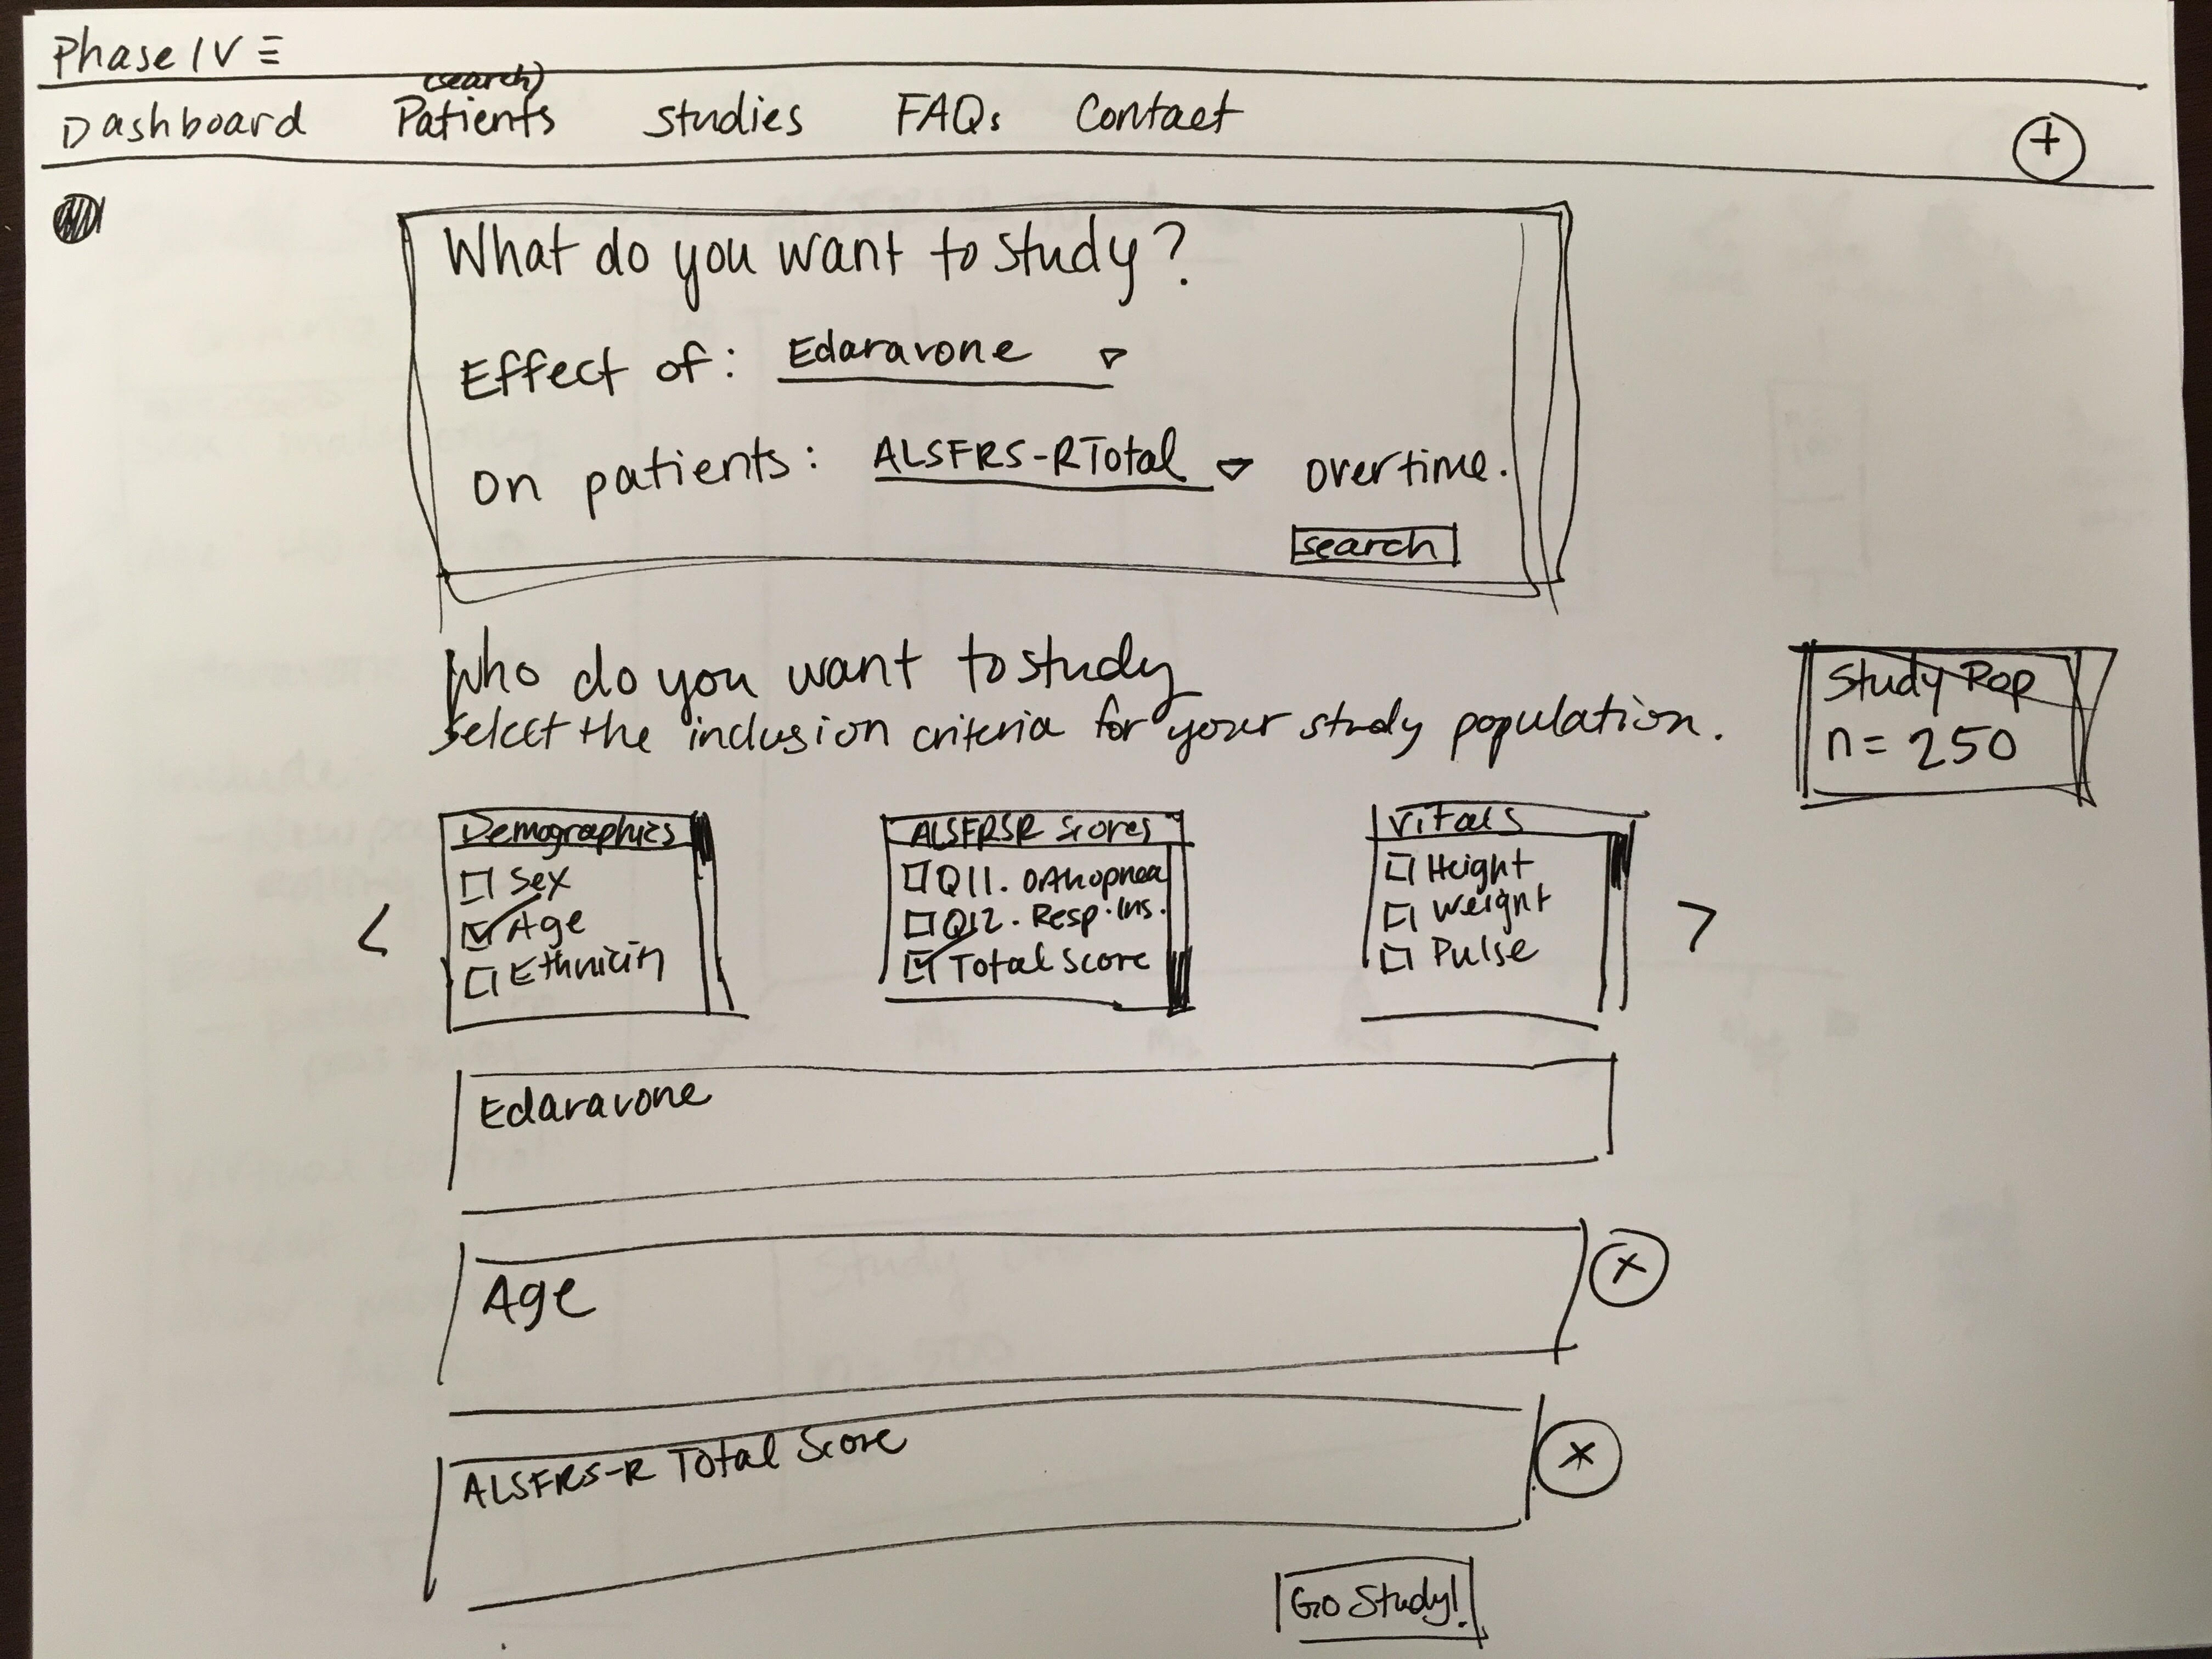 Phase IV
(search)
Dashboard Patients Studies FAQs Contact +
What do you want to study?
Effect of: Edaravone
On patients: ALSFRS-R Total overtime.
search
Who do you want to study
Select the inclusion criteria for your study population.
Study Pop
n = 250
Demographics
Sex
Age
Ethnicity
ALSFRSR Scores
Q11. Orthopnea
Q12. Resp. Ins.
Total Score
Vitals
Height
Weight
Pulse
< >
Edaravone
Age X
ALSFRS-R Total Score X
Go Study!